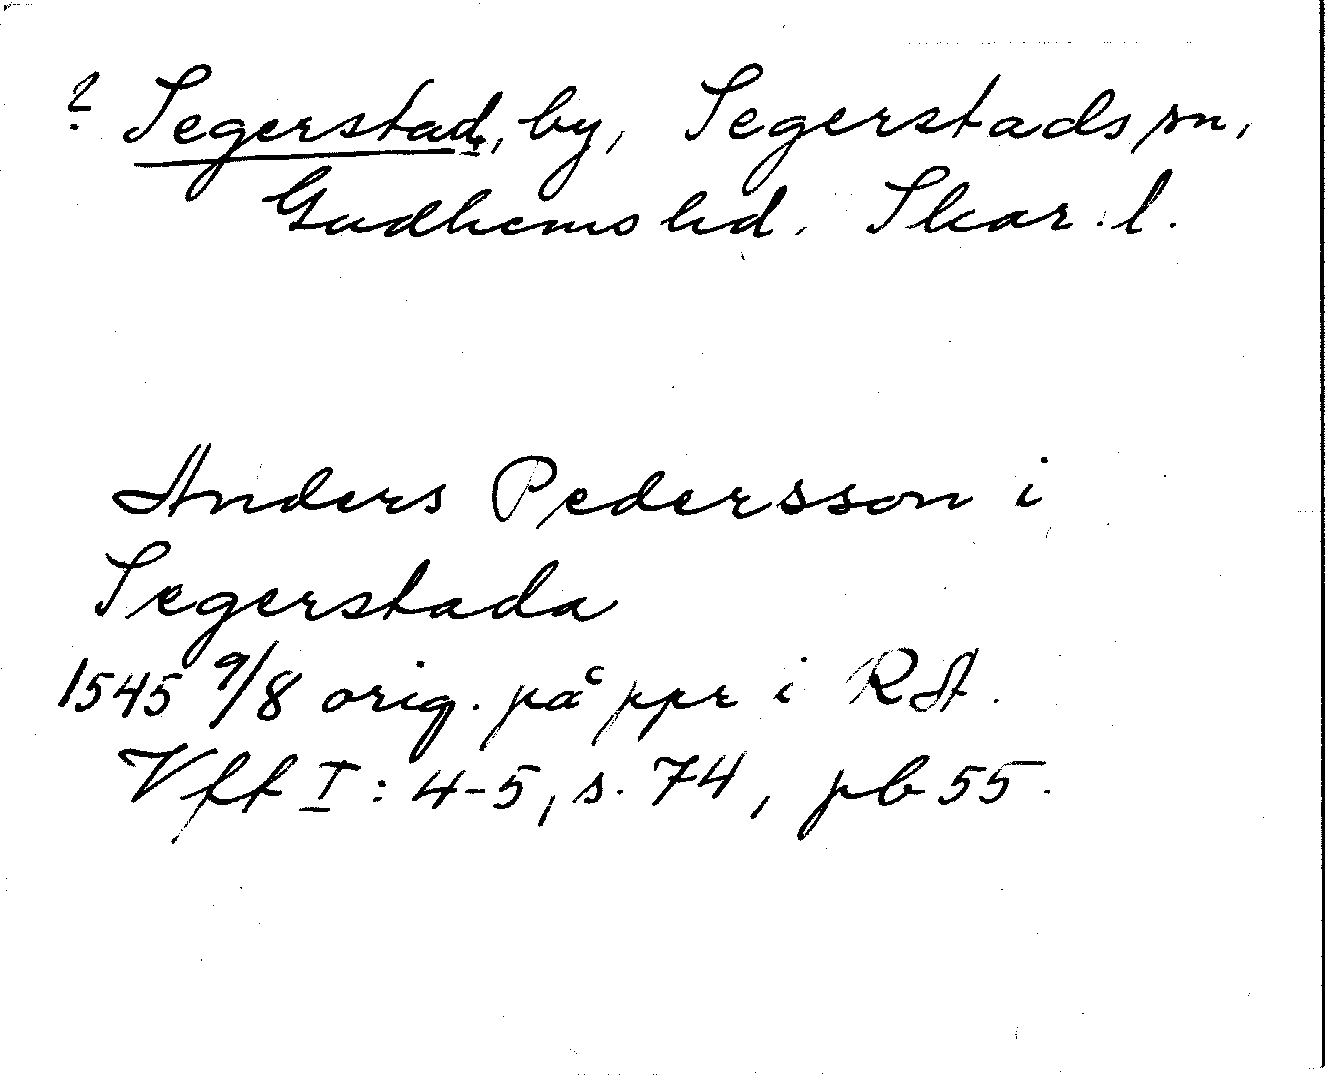 ? Segerstad, by, Segerstads sn,
Gudhems hd. Skar. l.
Anders Pedersson i
Segerstada
1545 9/8 orig. på ppr i RA.
Vff I: 4-5, s. 74, pb 55.